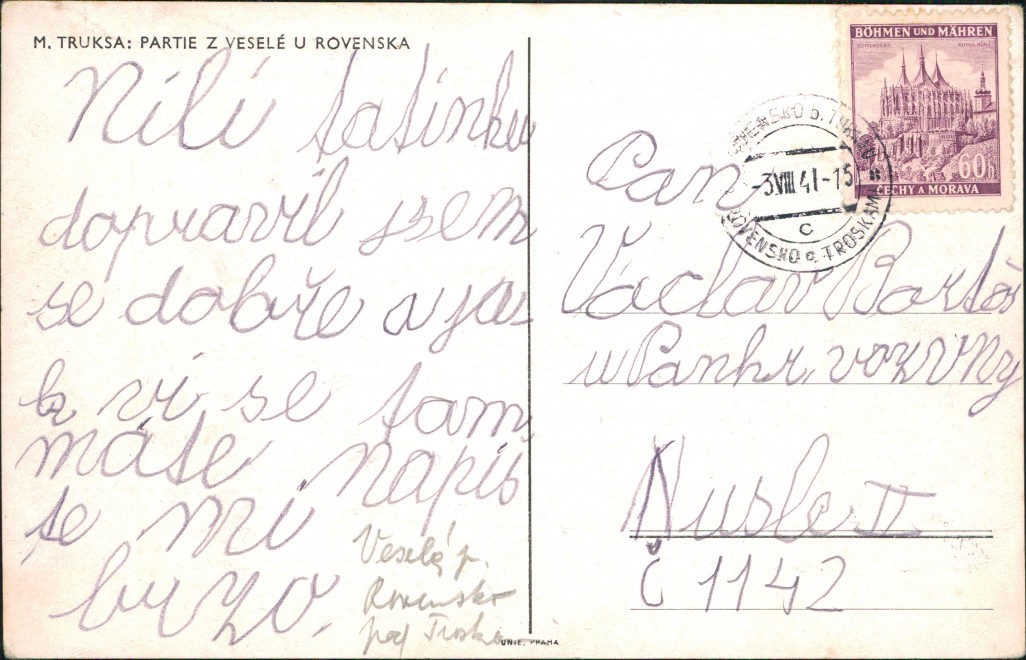 M. TRUKSA: PARTIE Z VESELÉ U ROVENSKA
Nilí tatínku
dopravil jsem
se dobře a ja-
k vi se tam
máte napiš
te mi
brzo.
Veselá p.
Rovensko
pod Troska
UNIE, PRAHA
BÖHMEN UND MÄHREN
60h
ČECHY A MORAVA
-3.VIII.41-15
C
ROVENSKO p. TROSKAMI
Pan
Václav
u Pankr. vozovny
Nusle II
č 1142